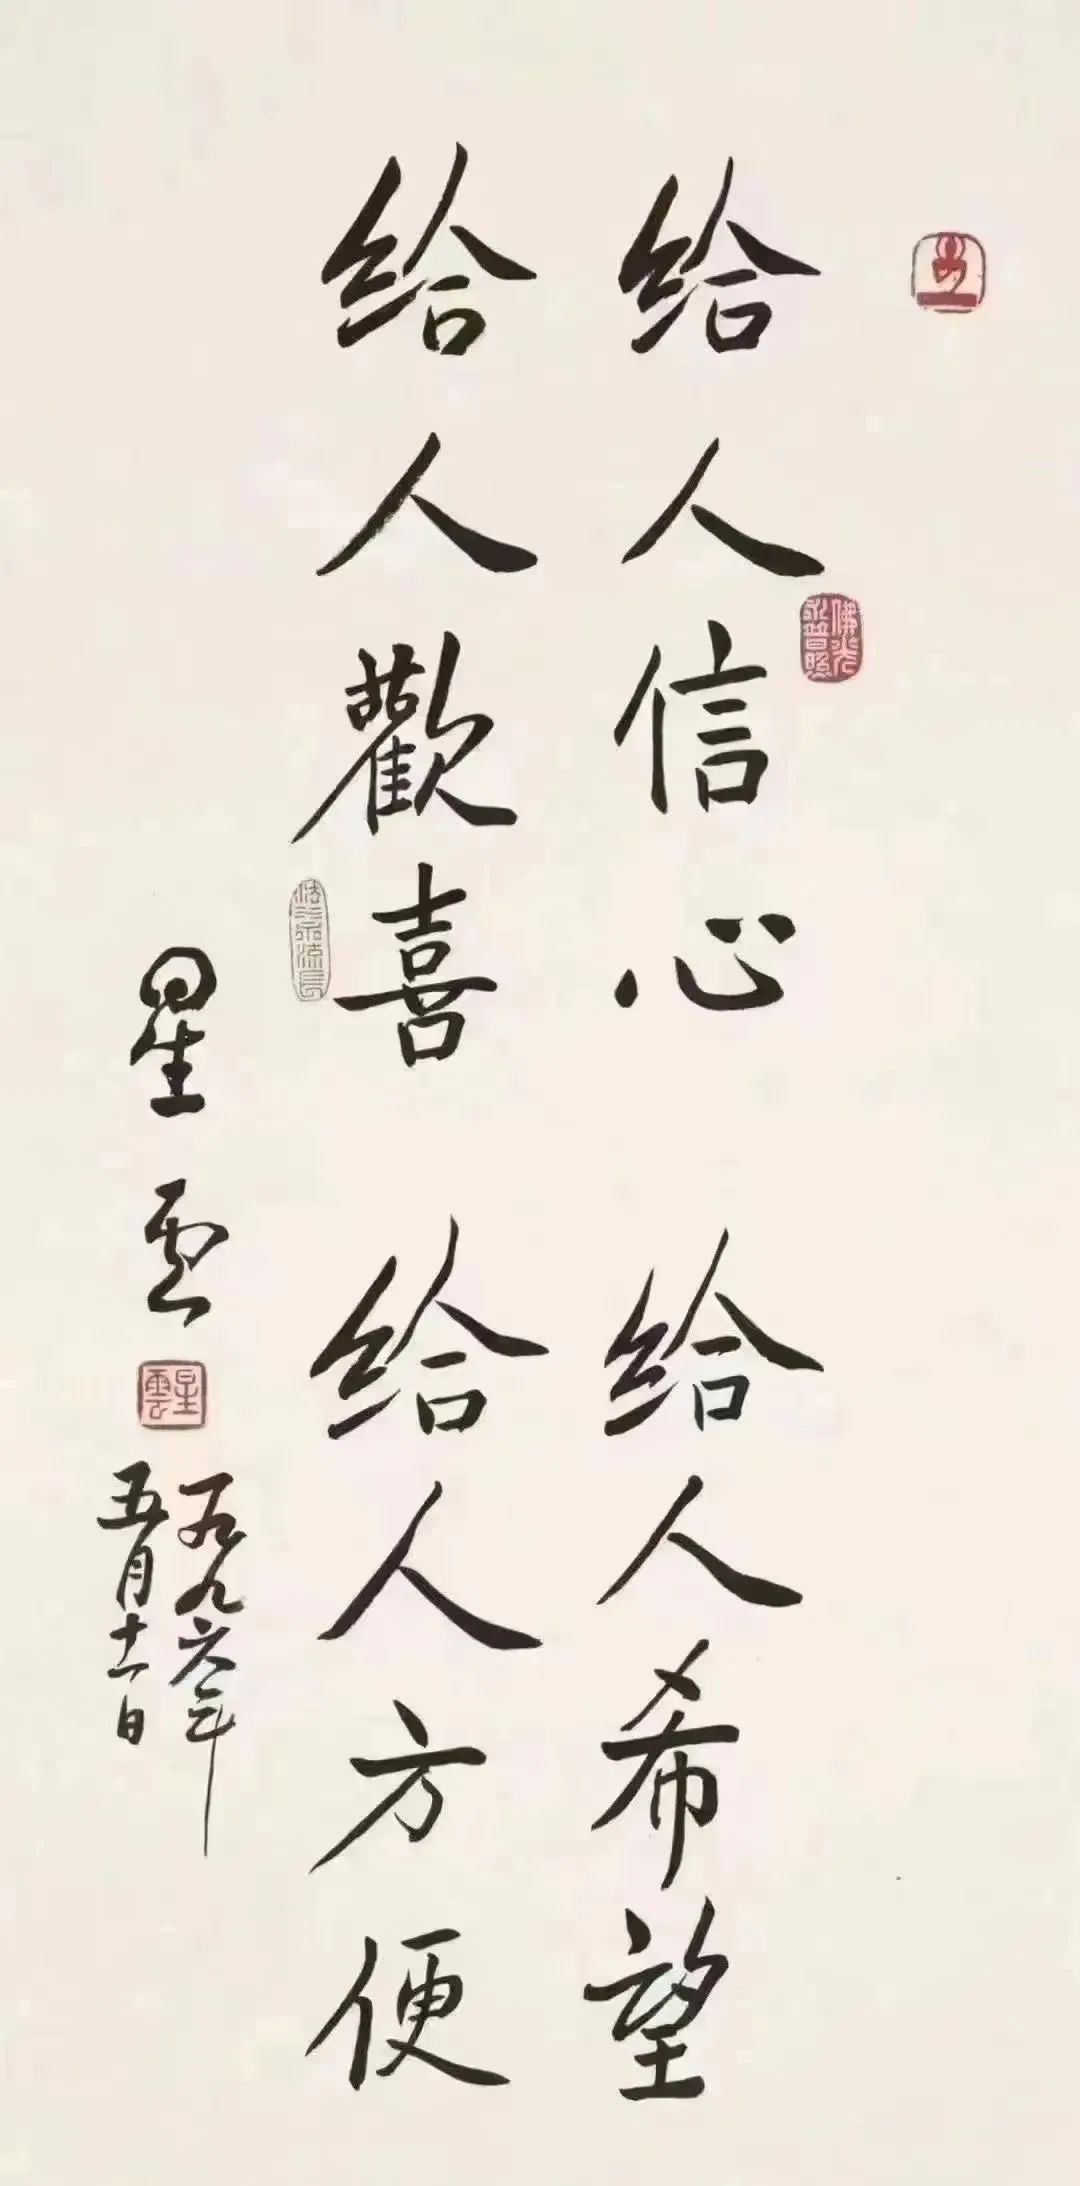 给人信心 给人希望
给人歡喜 给人方便
星雲
一九九六年
五月十一日
佛光
永普照
星雲